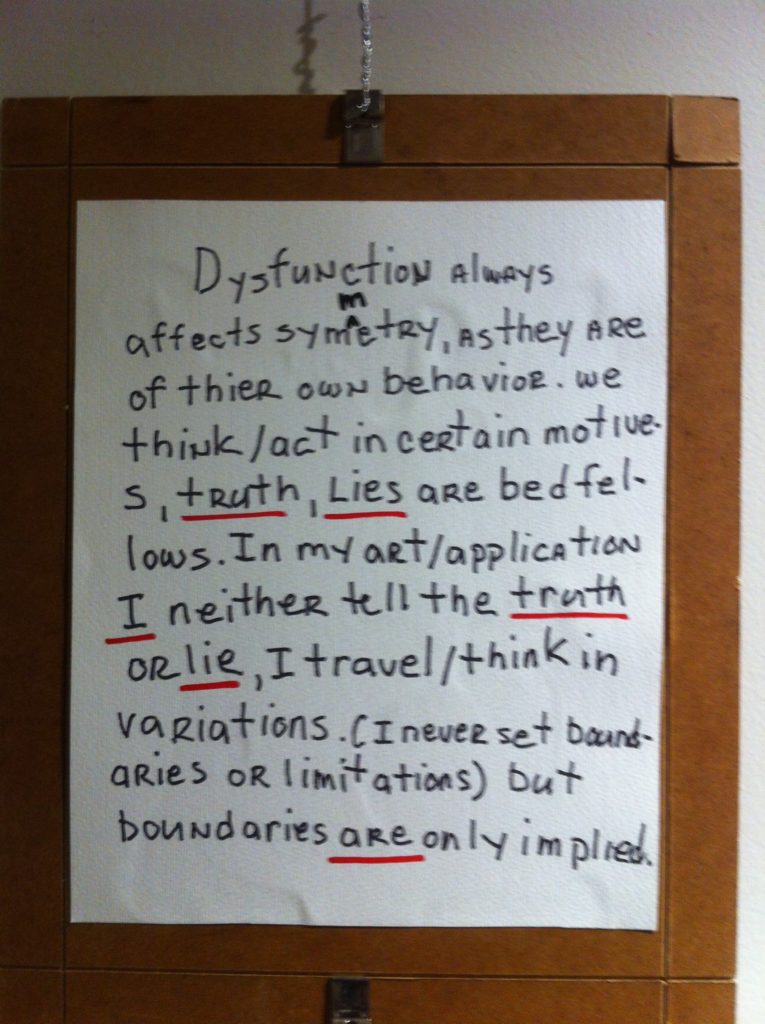 Dysfunction always
affects symmetry, as they are
of thier own behavior. we
think/act in certain motive-
s, truth, Lies are bedfel-
lows. In my art/application
I neither tell the truth
or lie, I travel/think in
variations. (I never set bound-
aries or limitations) but
boundaries are only implied.